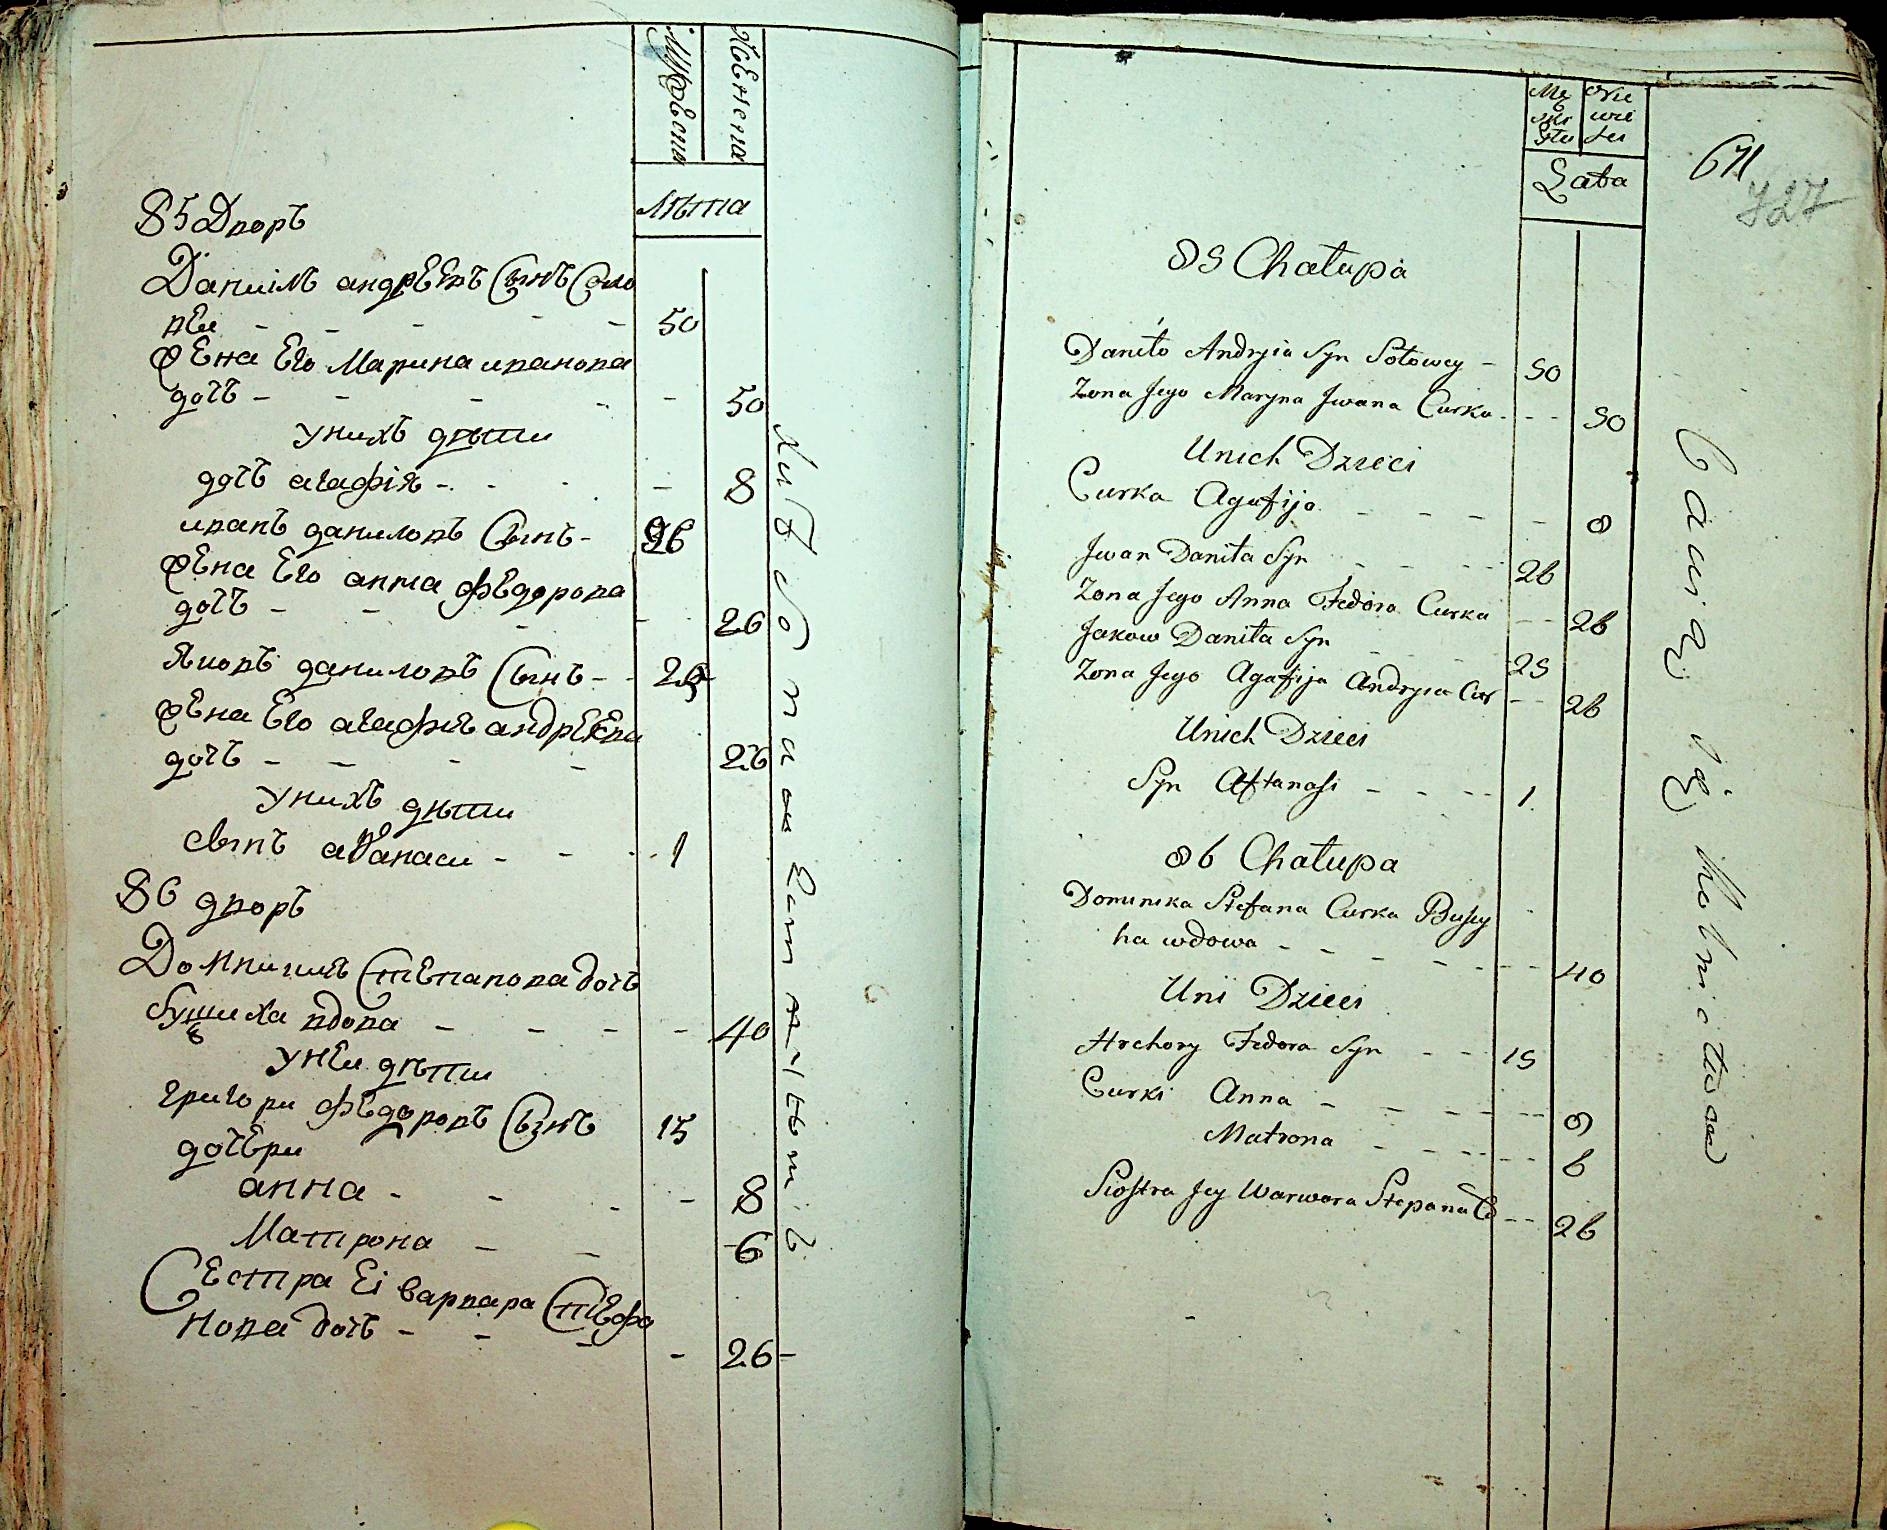 Мужеска
Женска
Лѣта
85 Дворъ
Данiилъ андрѣевъ Сынъ Соло
вей - - - - - 50
жена Его Марина иванова
дочь - - - - - 50
У нихъ дѣти
дочь агафiя - - - - 8
иванъ даниловъ Сынъ - 26
жена Его анна фѣдорова
дочь - - - - 26
Яковъ даниловъ Сынъ - - 25
жена Его агафия андрѣева
дочь - - - - 26
У нихъ дѣти
сынъ аѳанаси - - - 1
86 дворъ
Домникия Стѣпанова дочь
бушиха вдова - - - - 40
У неи дѣти
григори фѣдоровъ Сынъ 15
дочѣри
анна - - - - 8
Матрона - - 6
Сестра Еi варвара Стѣфа
нова дочь - - - - 26 -
Me
s
kie
wie
Lata
671
727
85 Chałupa
Daniło Andryia Syn Sołowey - 50
Zona Jego Maryna Jwana Curka - - - 50
Unich Dzieci
Curka Agafija - - - - - 8
Jwan Daniła Syn - - - - 26
Zona Jego Anna Fedora Curka - - 26
Jakow Daniła Syn - - - - 25
Zona Jego Agafija Andryia Cur - - 26
Unich Dzieci
Syn Aftanasi - - - - 1
86 Chałupa
Dominika Stefana Curka Buszy
ha wdowa - - - - - - - 40
Uni Dzieci
Hrehory Fedora Syn - - 15
Curki Anna - - - - - - 8
Matrona - - - - - - 6
Siostra Jey Warwara Stepana C - - 26